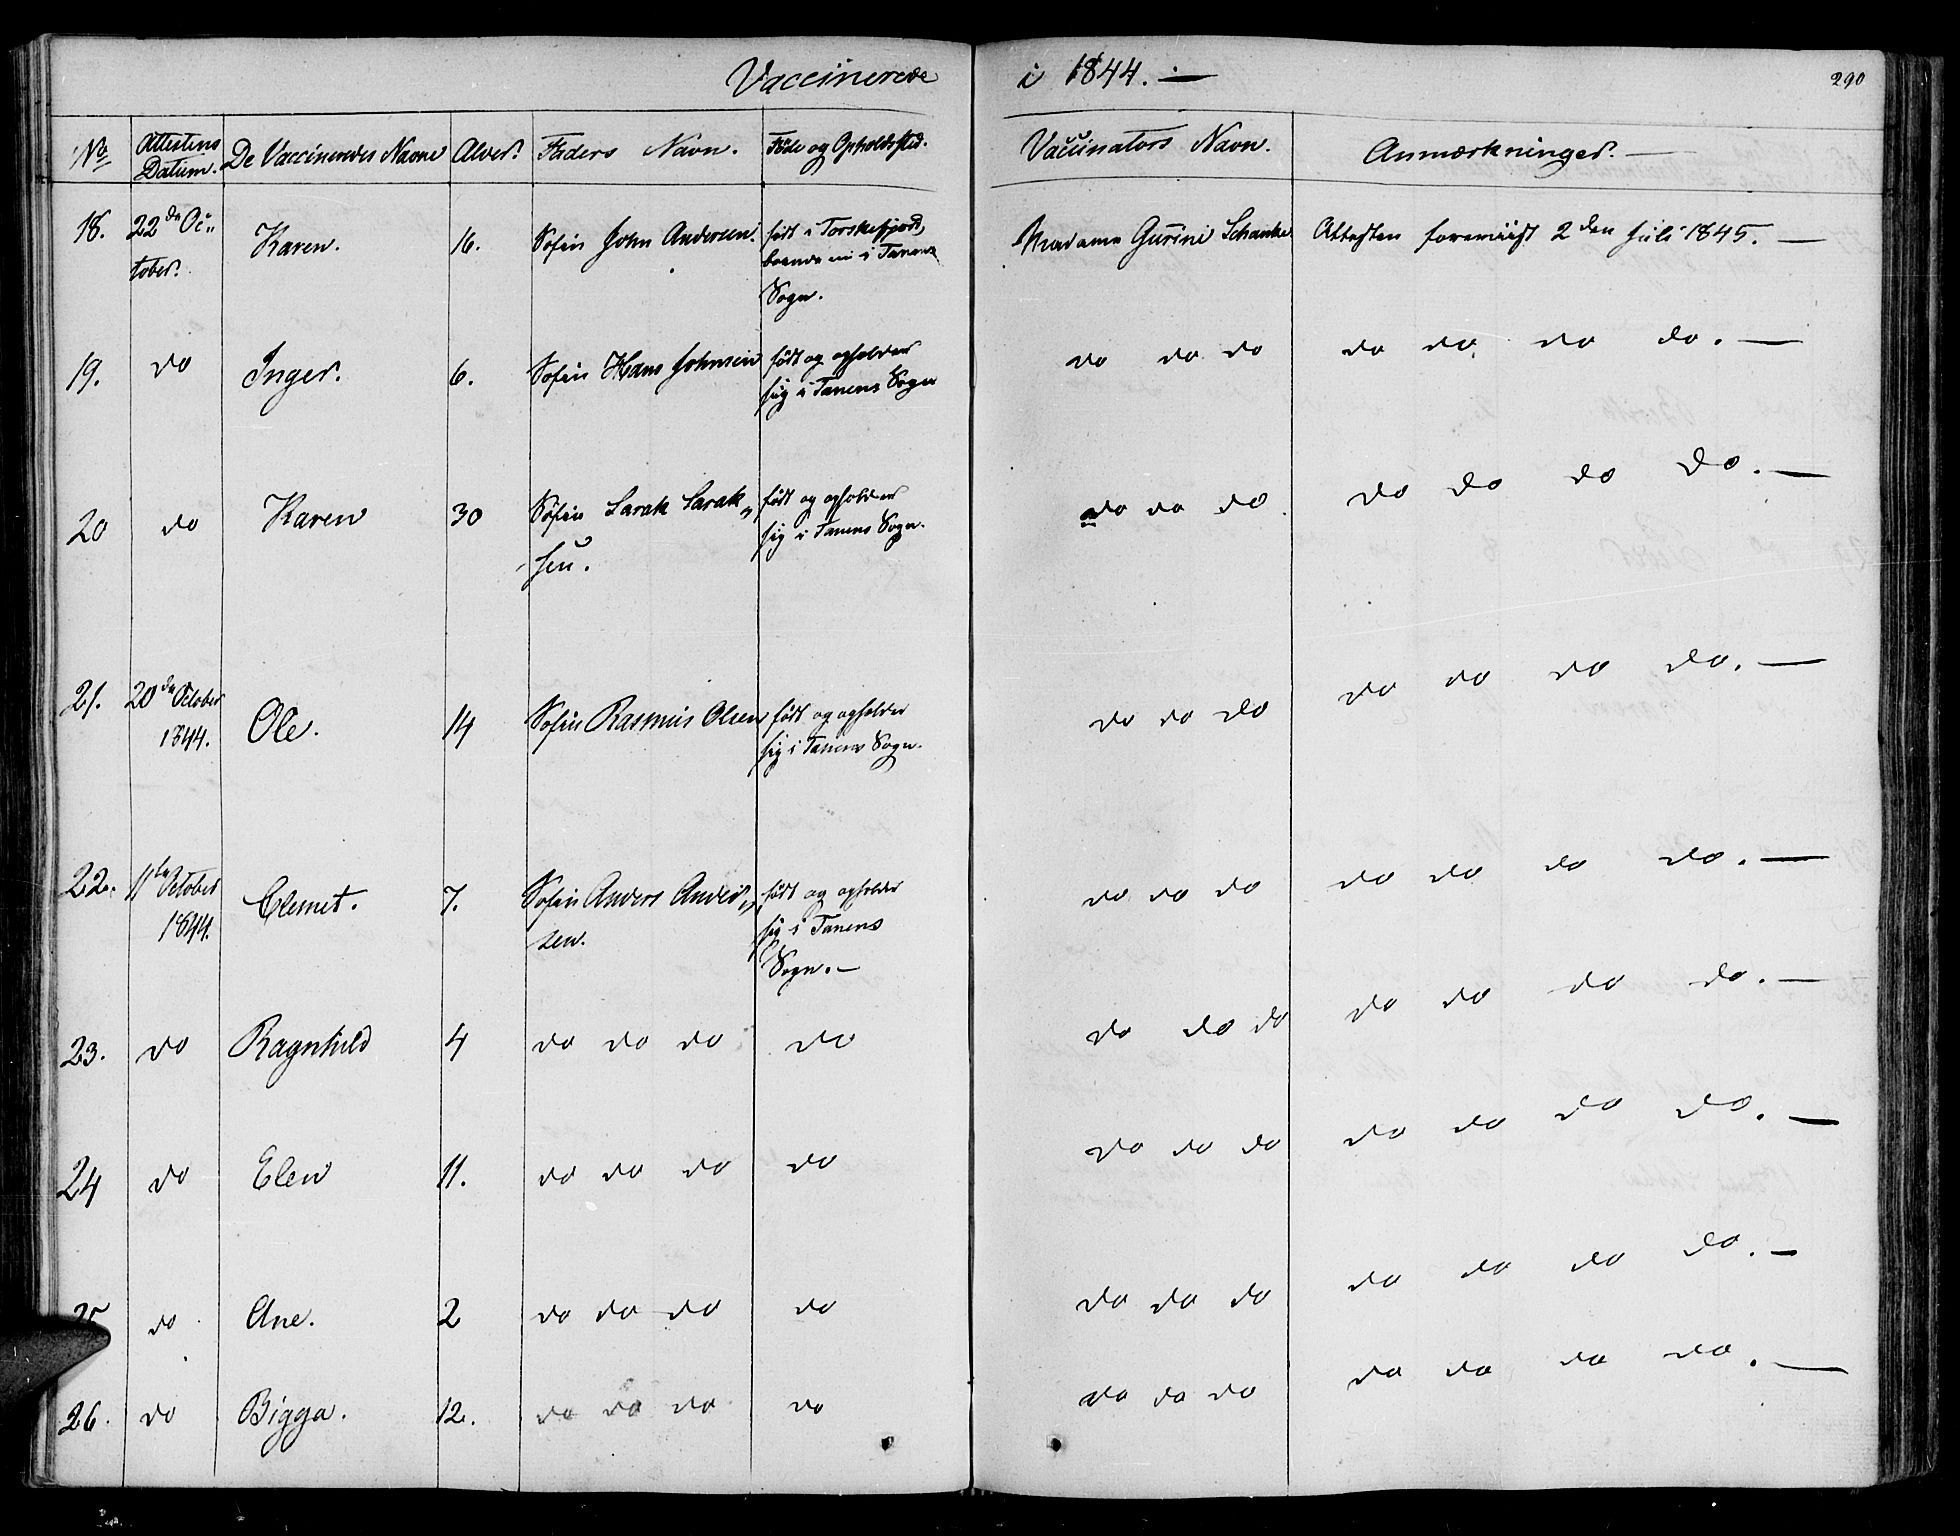 Vaccinerede i 1844. —
290
No Attestens Datum. De Vaccineredes Navne Alder. Faders Navn. Føde og Opholdssted. Vaccinators Navn. Anmærkninger. —
18. 22de Oc„ Karen. 16. Søfin John Andersen. født i Torskefjord, Madame Gurini Schanke Attesten foreviist 2den Juli 1845. —
tober. boende nu i Tanens
Sogn.
19. do Inger. 6. Søfin Hans Johnsen født og opholder do do do do do do do. —
sig i Tanens Sogn
20 do Karen 30 Søfin Sarak Sarak„ født og opholder do do do do do do do. —
sen. sig i Tanens Sogn.
21. 20de October Ole. 14 Søfin Rasmus Olsen født og opholder do do do do do do do. —
1844. sig i Tanens Sogn.
22. 11te October Clemet. 7. Søfin Anders Ander„ født og opholder do do do do do do do. —
1844. sen. sig i Tanens
Sogn. —
23. do Ragnhild 4 do do do do do do do do do do do. —
24 do Elen 11. do do do do do do do do do do do. —
25 do Ane. 2 do do do do do do do do do do do. —
26. do Bigga. 12. do do do do do do do do do do do. —